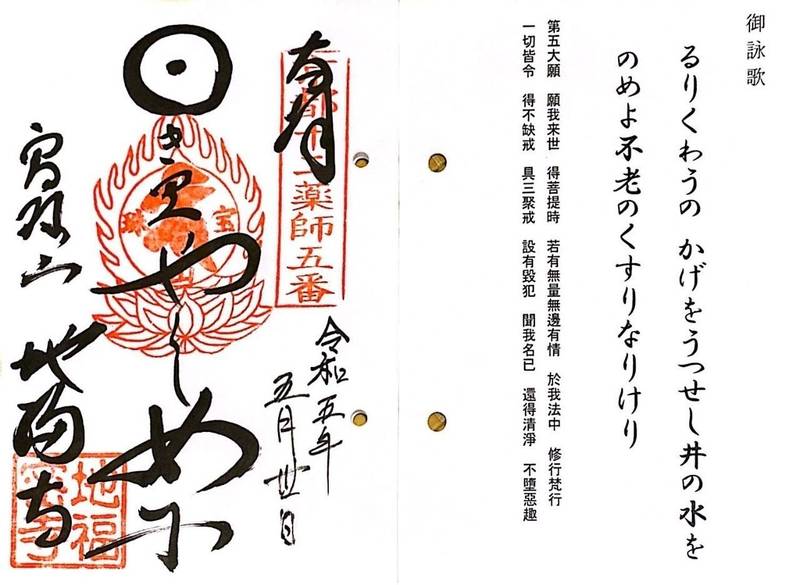 御詠歌
るりくわうの かげをうつせし井の水を
のめよ不老のくすりなりけり
第五大願 願我来世 得菩提時 若有無量無邊有情 於我法中 修行梵行
一切皆令 得不缺戒 具三聚戒 設有毀犯 聞我名已 還得清淨 不墮惡趣
奉拝
京都十二薬師五番
令和五年
五月丗日
やくし
宝珠山
地福寺